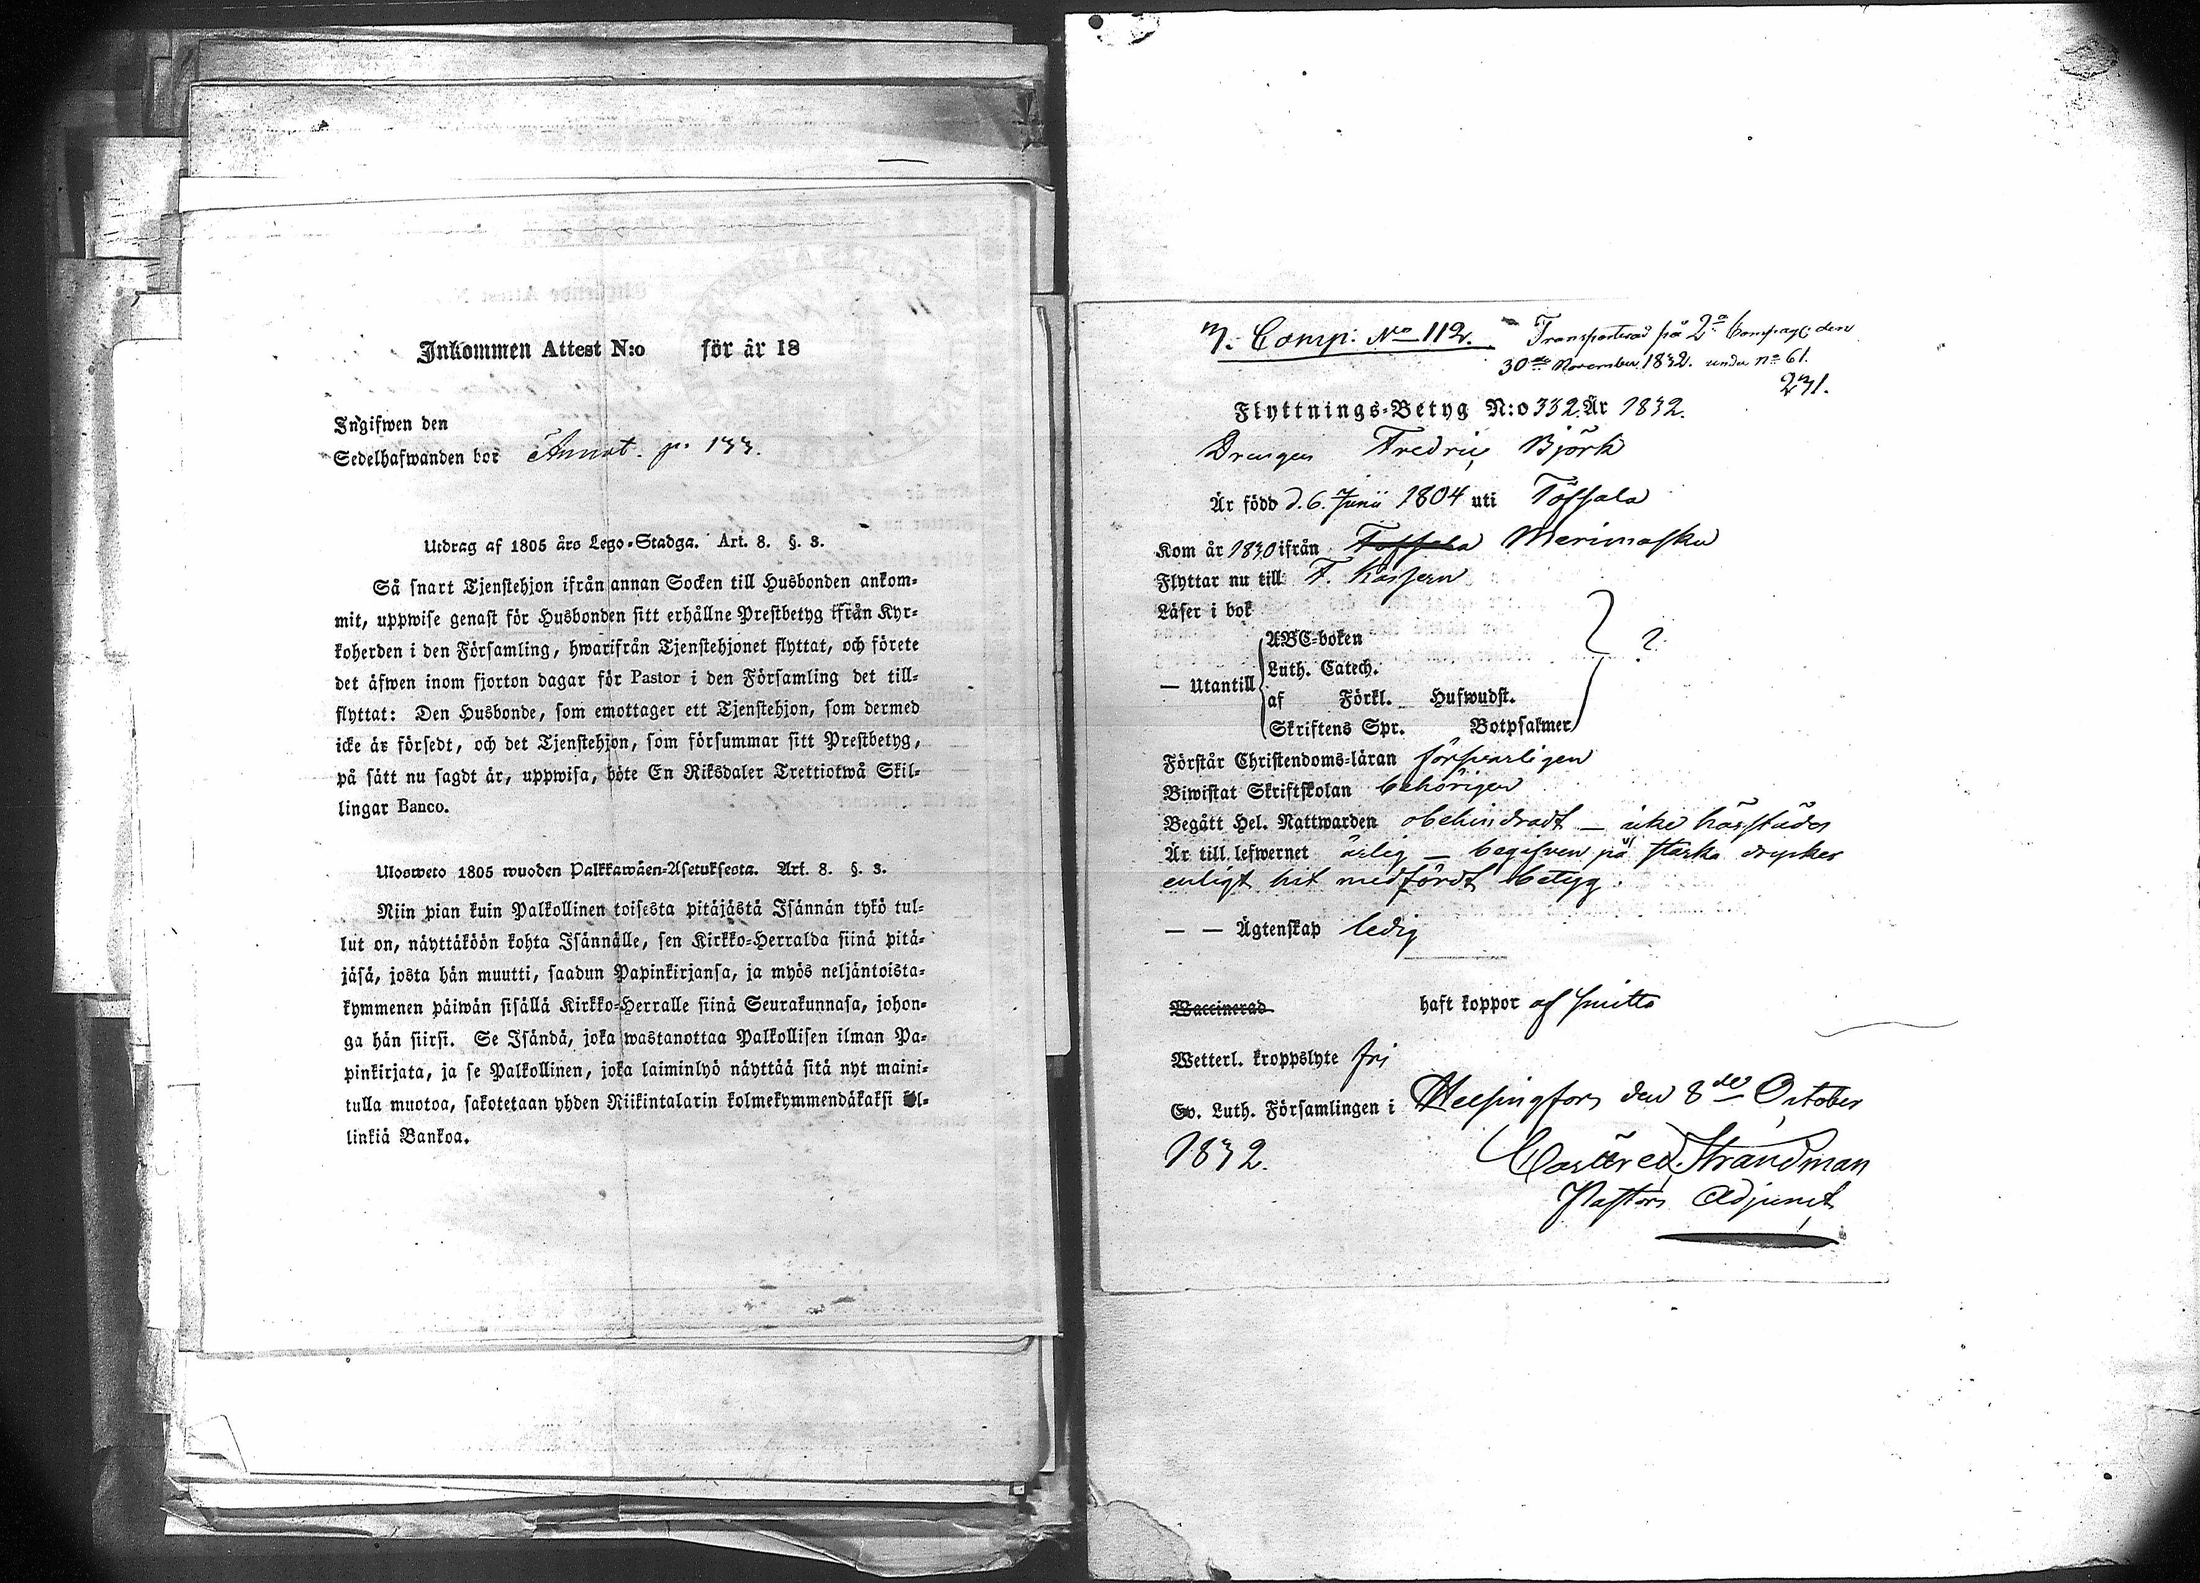 Inkommen Attest N:o för år 18
Ingifwen den
Sedelhafwanden bor Annot. p. 133.
Utdrag af 1805 års Lego-Stadga. Art. 8. §. 3.
Så snart Tjenstehjon ifrån annan Socken till Husbonden ankom-
mit, uppwise genast för Husbonden sitt erhållne Prestbetyg ifrån Kyr-
koherden i den Församling, hwarifrån Tjenstehjonet flyttat, och förete
det äfwen inom fjorton dagar för Pastor i den Församling det till-
flyttat: Den Husbonde, som emottager ett Tjenstehjon, som dermed
icke är försedt, och det Tjenstehjon, som försummar sitt Prestbetyg,
på sätt nu sagdt är, uppwisa, böte En Riksdaler Trettiotwå Skil-
lingar Banco.
Ulosweto 1805 wuoden Palkkawäen-Asetuksesta. Art. 8. §. 3.
Niin pian kuin Palkollinen toisesta pitäjästä Isännän tykö tul-
lut on, näyttäköön kohta Isännälle, sen Kirkko-Herralda siinä pitä-
jäsä, josta hän muutti, saadun Papinkirjansa, ja myös neljäntoista-
kymmenen päiwän sisällä Kirkko-Herralle siinä Seurakunnasa, johon-
ga hän siirsi. Se Isändä, joka wastanottaa Palkollisen ilman Pa-
pinkirjata, ja se Palkollinen, joka laiminlyö näyttää sitä nyt maini-
tulla muotoa, sakotetaan yhden Riikintalarin kolmekymmendäkaksi kil-
linkiä Bankoa.
7. Comp: No 112. Transporterad på 2a Compagt: den
30de November 1832. under no 61.
231.
Flyttnings-Betyg N:o 332. År 1832.
Drengen Fredric Björk
Är född d. 6. Junii 1804 uti Töfsala
Kom år 1830 ifrån Töfsala Merimasku
Flyttar nu till F. Kasern
Läser i bok
ABC-boken
Luth. Catech. ?
— Utantill af Förkl. Hufwudst.
Skriftens Spr. Botpsalmer
Förstår Christendoms-läran försvarligen
Biwistat Skriftskolan behörigen
Begått Hel. Nattwarden obehindradt — icke härstädes
Är till lefwernet ärlig — begifven på starka drycker
enligt hit medfördt betyg.
— — Ägtenskap ledig
Waccinerad haft koppor af smitta
Wetterl. kroppslyte fri
Ev. Luth. Församlingen i Helsingfors den 8de October
1832. Strandman
Pastors Adjunct